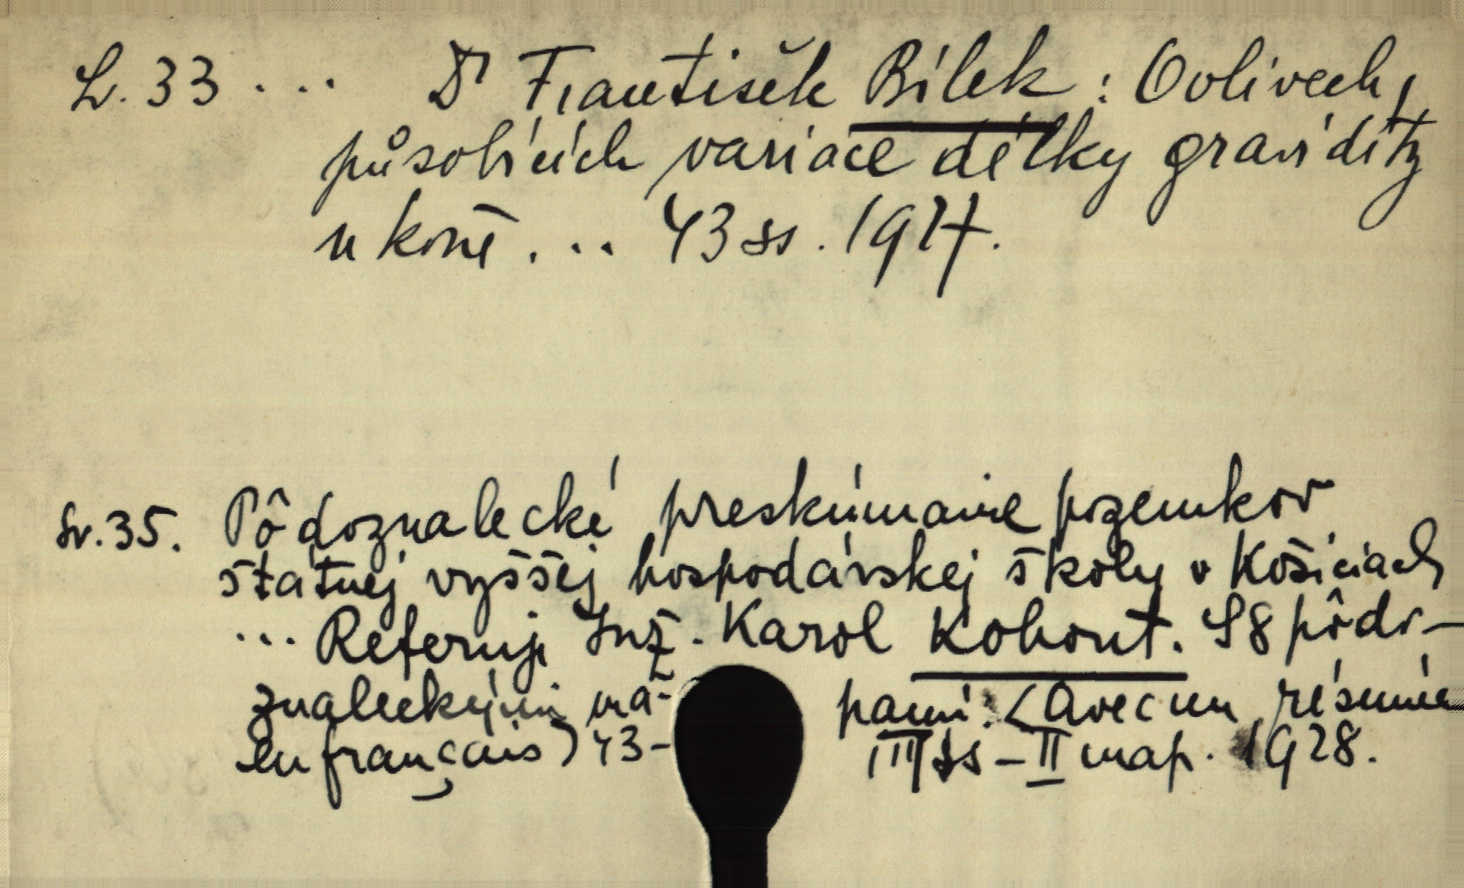 Sv. 33 ... Dr František Bílek: O vlivech,
působících variace délky gravidity
u koně. ... 43 ss. 1927.
Sv. 35. Pôdoznalecké preskúmanie pozemkov
štátnej vyššej hospodárskej školy v Košiciach
... Referuje Inž. Karol Kohout. S 8 pôdo-
znaleckými ma- pami. (Avec un résumée
en français) 43- III ss - II map. 1928.